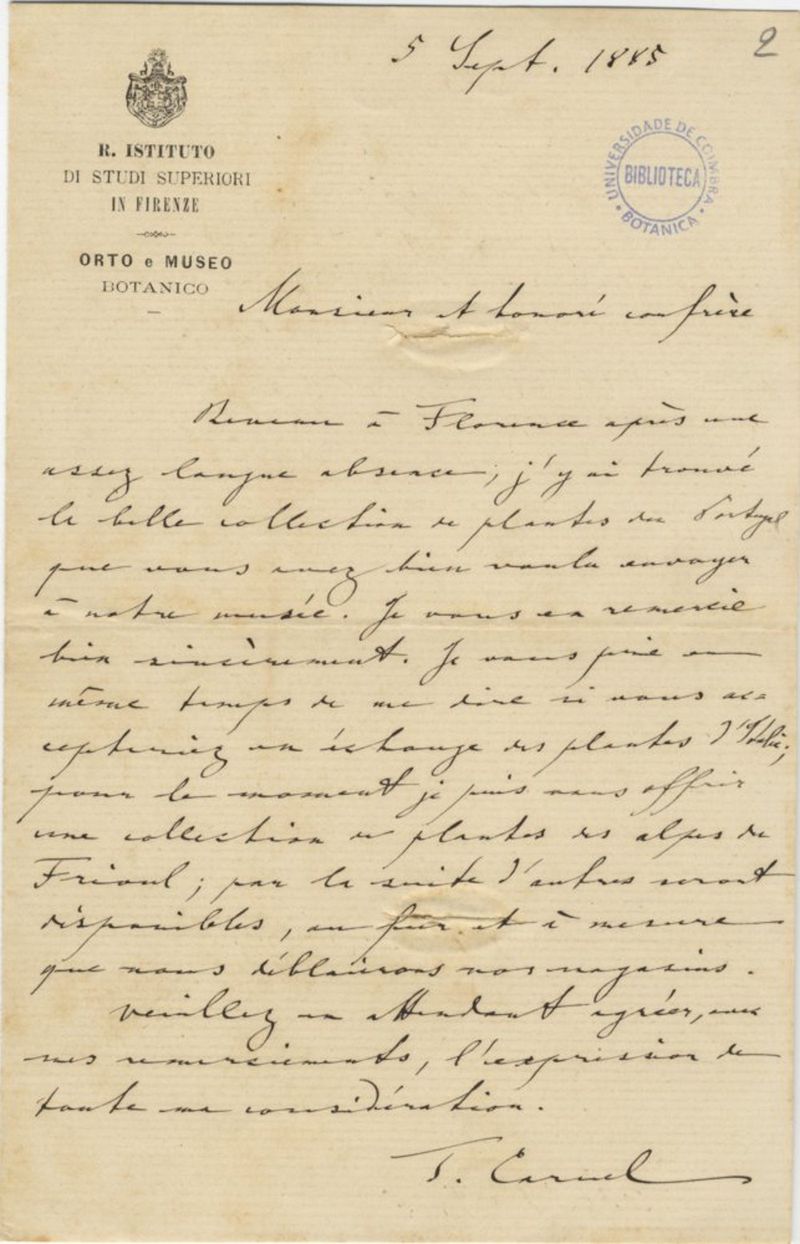 5 Sept. 1885
2
R. ISTITUTO
DI STUDI SUPERIORI
IN FIRENZE
ORTO e MUSEO
BOTANICO
UNIVERSIDADE DE COIMBRA
BIBLIOTECA
BOTANICA
Monsieur et honoré confrère
Revenu à Florence après une
assez longue absence, j'y ai trouvé
la belle collection de plantes du Portugal
que vous avez bien voulu envoyer
à notre musée. Je vous en remercie
bien sincèrement. Je vous prie en
même temps de me dire si vous ac-
cepteriez en échange des plantes d'Italie;
pour le moment je puis vous offrir
une collection de plantes des alpes du
Frioul; par la suite d'autres seront
disponibles, au fur et à mesure
que nous déblairons nos magasins.
Veuillez en attendant agréer, avec
mes remerciements, l'expression de
toute ma considération.
T. Caruel